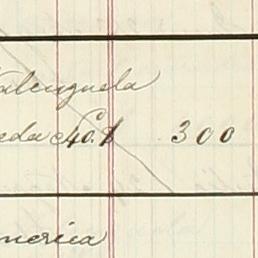 alenzuela
eda No. 1 300
merica